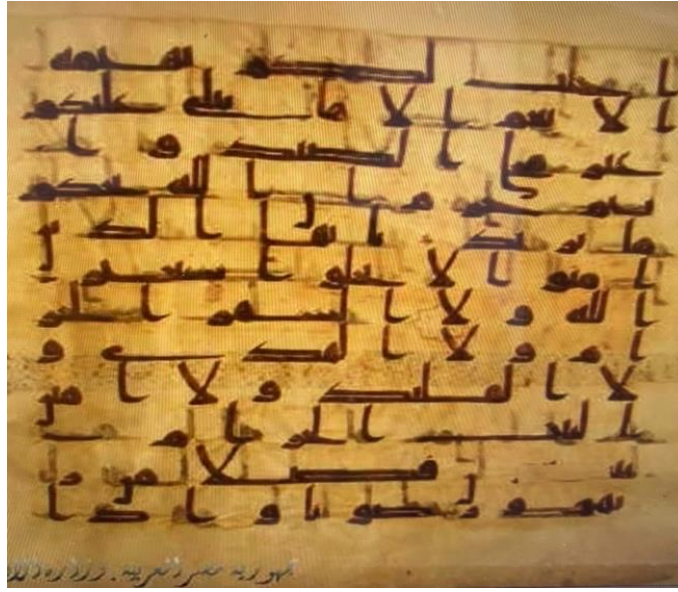 احلت لكم بهيمه
الانعم الا ما يتلى عليكم
غير محلى الصيد وا
نتم حرم ان الله يحكم
ما يريد يايها الذين
امنوا لا تحلوا شعير
الله ولا الشهر الحر
ام ولا الهدى و
لا القليد ولا امين
البيت الحرام يبتـ
ـغون فضلا من ر
بهم ورضونا واذا
جمهورية مصر العربية . وزارة الأو